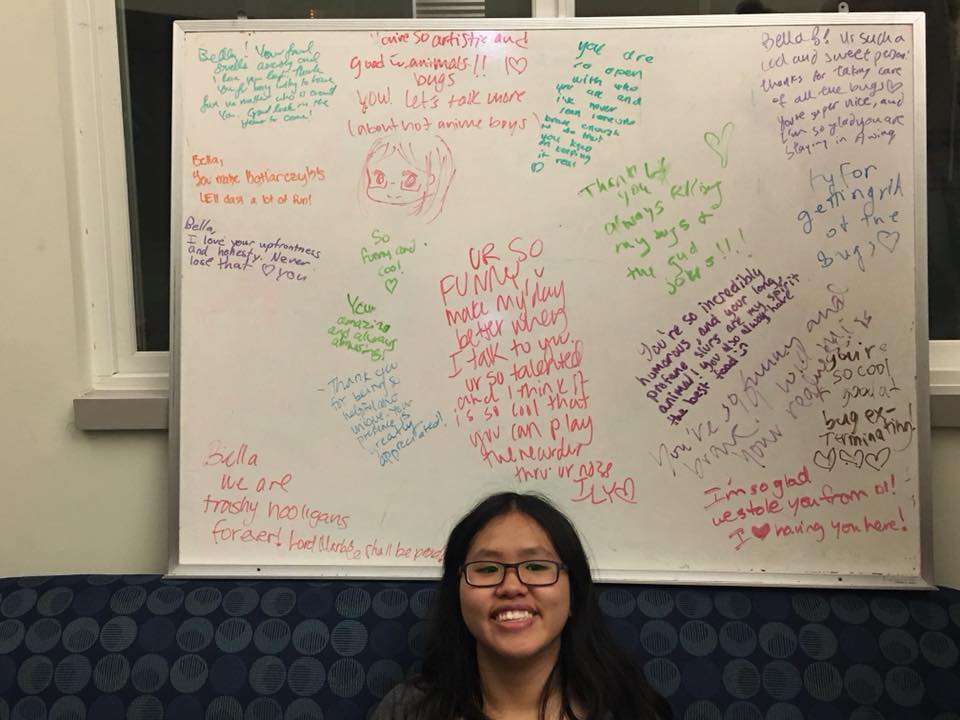 Bella! Your foul
smells annoy and
I love you lots. Thank
for me matter who is around
You. Good luck in the
year to come!
You're so artistic and
good w animals!! I ♡
bugs
you! Let's talk more
(about hot anime boys)
you are
so open
with who
you are and
I've never
seen someone
brave enough
to do that
you know
on keeping
it real
♡
Bella B! Ur such a
cool and sweet person!
thanks for taking care
of all the bugs♡
You're super nice, and
I'm so glad you are
staying in A wing
Bella,
You make
LEII dass a lot of fun!
Bella,
I love your upfrontness
and honesty. Never
lose that ♡ you
So
funny and
cool
♡
Your
amazing
and always
amusing!
- Thank you
for being a
unique. your
presence is
really
appreciated!
UR SO
FUNNY, U
make my day
better when
I talk to you.
ur so talented
and I think it
is so cool that
you can play
the recorder
thru ur nose
ILY♡
Thank
you
always killing
my bugs &
the gud
jokes!!!
♡
ty for
getting rid
of the
bugs♡
You're so incredibly
humorous, and your long,
profane slurs are my spirit
animal! you also always have
the best food :)
You're so funny and
brave! I wild
your realness! is
you're
so cool
& good at
bug ex-
terminating!
♡♡♡
Bella
we are
trashy hooligans
forever! Lord Marble shall be
I'm so glad
we stole you from 01!
I ♥ having you here!